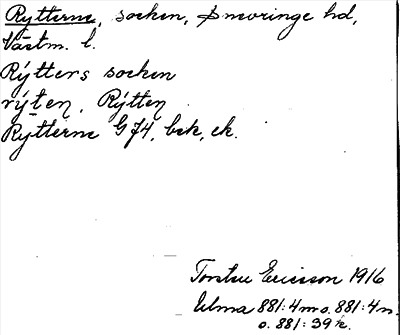 Rytterne, socken, Snevringe hd,
Västm. l.
Rýtters socken
rýten, Rýtten
Rytterne G 74, bsk, ek.
Torsten Ericsson 1916
Ulma 881:4 m o. 881:4 n.
o. 881:39 k.